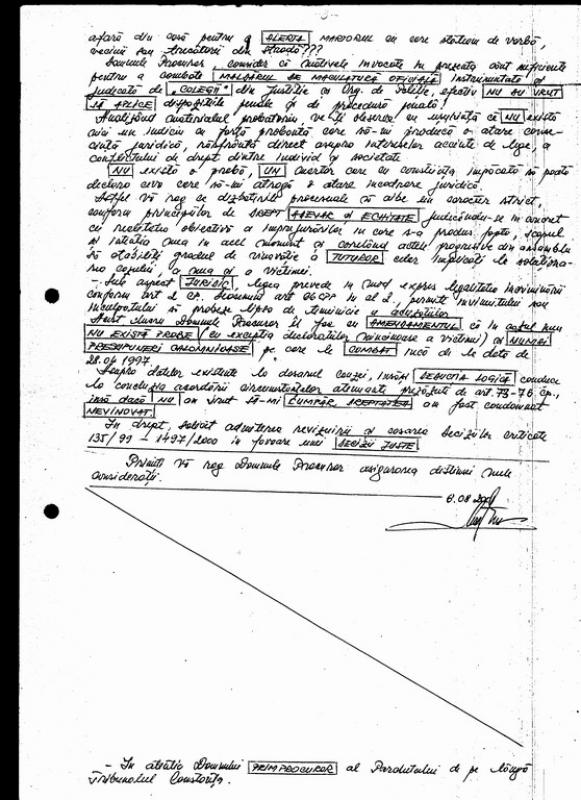 afară din casă pentru a ALERTA MARTORUL cu care stăteam de vorbă,
vecinii sau trecătorii din stradă???
Domnule Procuror, consider că motivele invocate în prezenta sunt suficiente
pentru a combate MALDĂRUL DE MACULATURĂ OFICIALĂ instrumentată și
judecată de „COLEGII" din Justiție și Org. de Poliție, efectiv NU AU VRUT
SĂ APLICE dispozițiile penale și de procedură penală!
Analizând materialul probatoriu, ve-ți observa cu ușurință că NU există
nici un indiciu cu forță probantă care să-mi producă o atare
juridică, răsfrântă direct asupra intereselor de lege, a
conflictului de drept dintre individ și societate.
NU există o probă, UN martor care cu conștiința împăcată să poată
declara ceva care să-mi atragă o atare încadrare juridică.
Astfel vă rog ca dezbaterile procesuale să aibe un caracter strict,
conform principiilor de DREPT ADEVĂR și ECHITATE judecându-se în
cu realitatea obiectivă a împrejurărilor în care s-a produs fapta, scopul
și intenția mea în acel moment și corelând actele progresive din ansamblu
să stabiliți gradul de vinovăție a TUTUROR celor implicați în
cazului, a mea și a victimei.
- Sub aspect JURIDIC, legea prevede în mod expres legalitatea încriminării
conform art 2 CP. art 66 CPP în al 2, permit învinuitului sau
inculpatului să probeze lipsa de temeinicie a acuzațiilor.
Acest lucru Domnule Procuror îl fac cu AMENDAMENTUL că în cazul meu
NU EXISTĂ PROBE (cu excepția declarațiilor mincinoase a victimei) ci NUMAI
PRESUPUNERI CALOMNIOASE pe care le COMBAT încă de la data de
28.04 1997.
Asupra datelor existente la dosarul cauzei, însăși DEDUCȚIA LOGICĂ conduce
la concluzia acordării circumstanțelor atenuante prevăzute de art. 73-76 Cp.,
însă dacă NU am vrut să-mi CUMPĂR DREPTATEA am fost condamnat
NEVINOVAT.
În drept, solicit admiterea revizuirii și casarea deciziilor criticate
135/99 - 1497/2000 în favoarea unei DECIZII JUSTE
Primiți vă rog Domnule Procuror asigurarea distinsei mele
considerații.
6.08 2001
- În atenția Domnului PRIMPROCUROR al Parchetului de pe lângă
Tribunalul Constanța.